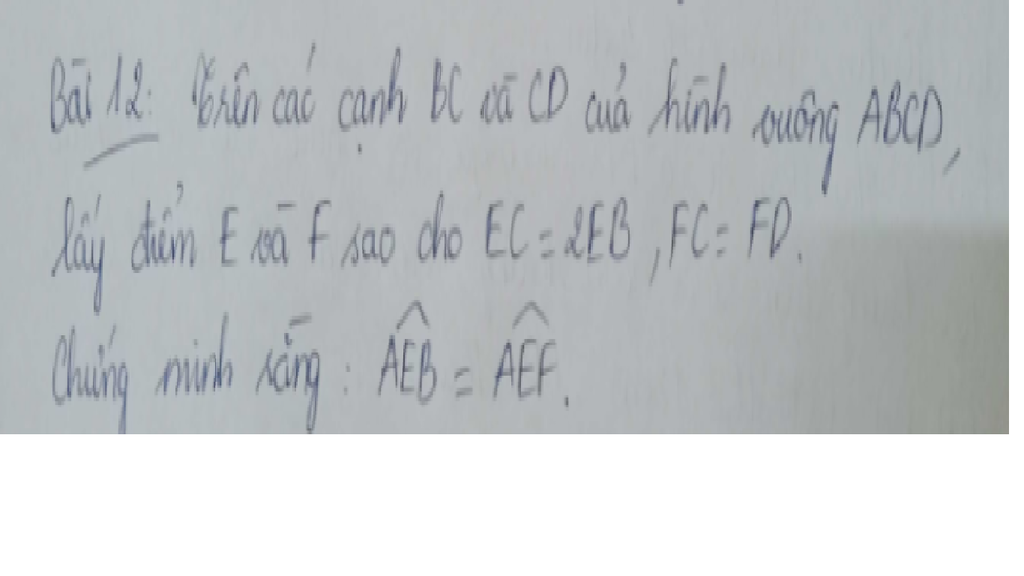 Bài 12: Trên các cạnh BC và CD của hình vuông ABCD,
lấy điểm E và F sao cho EC = 2EB, FC = FD.
Chứng minh rằng: \widehat{AEB} = \widehat{AEF}.